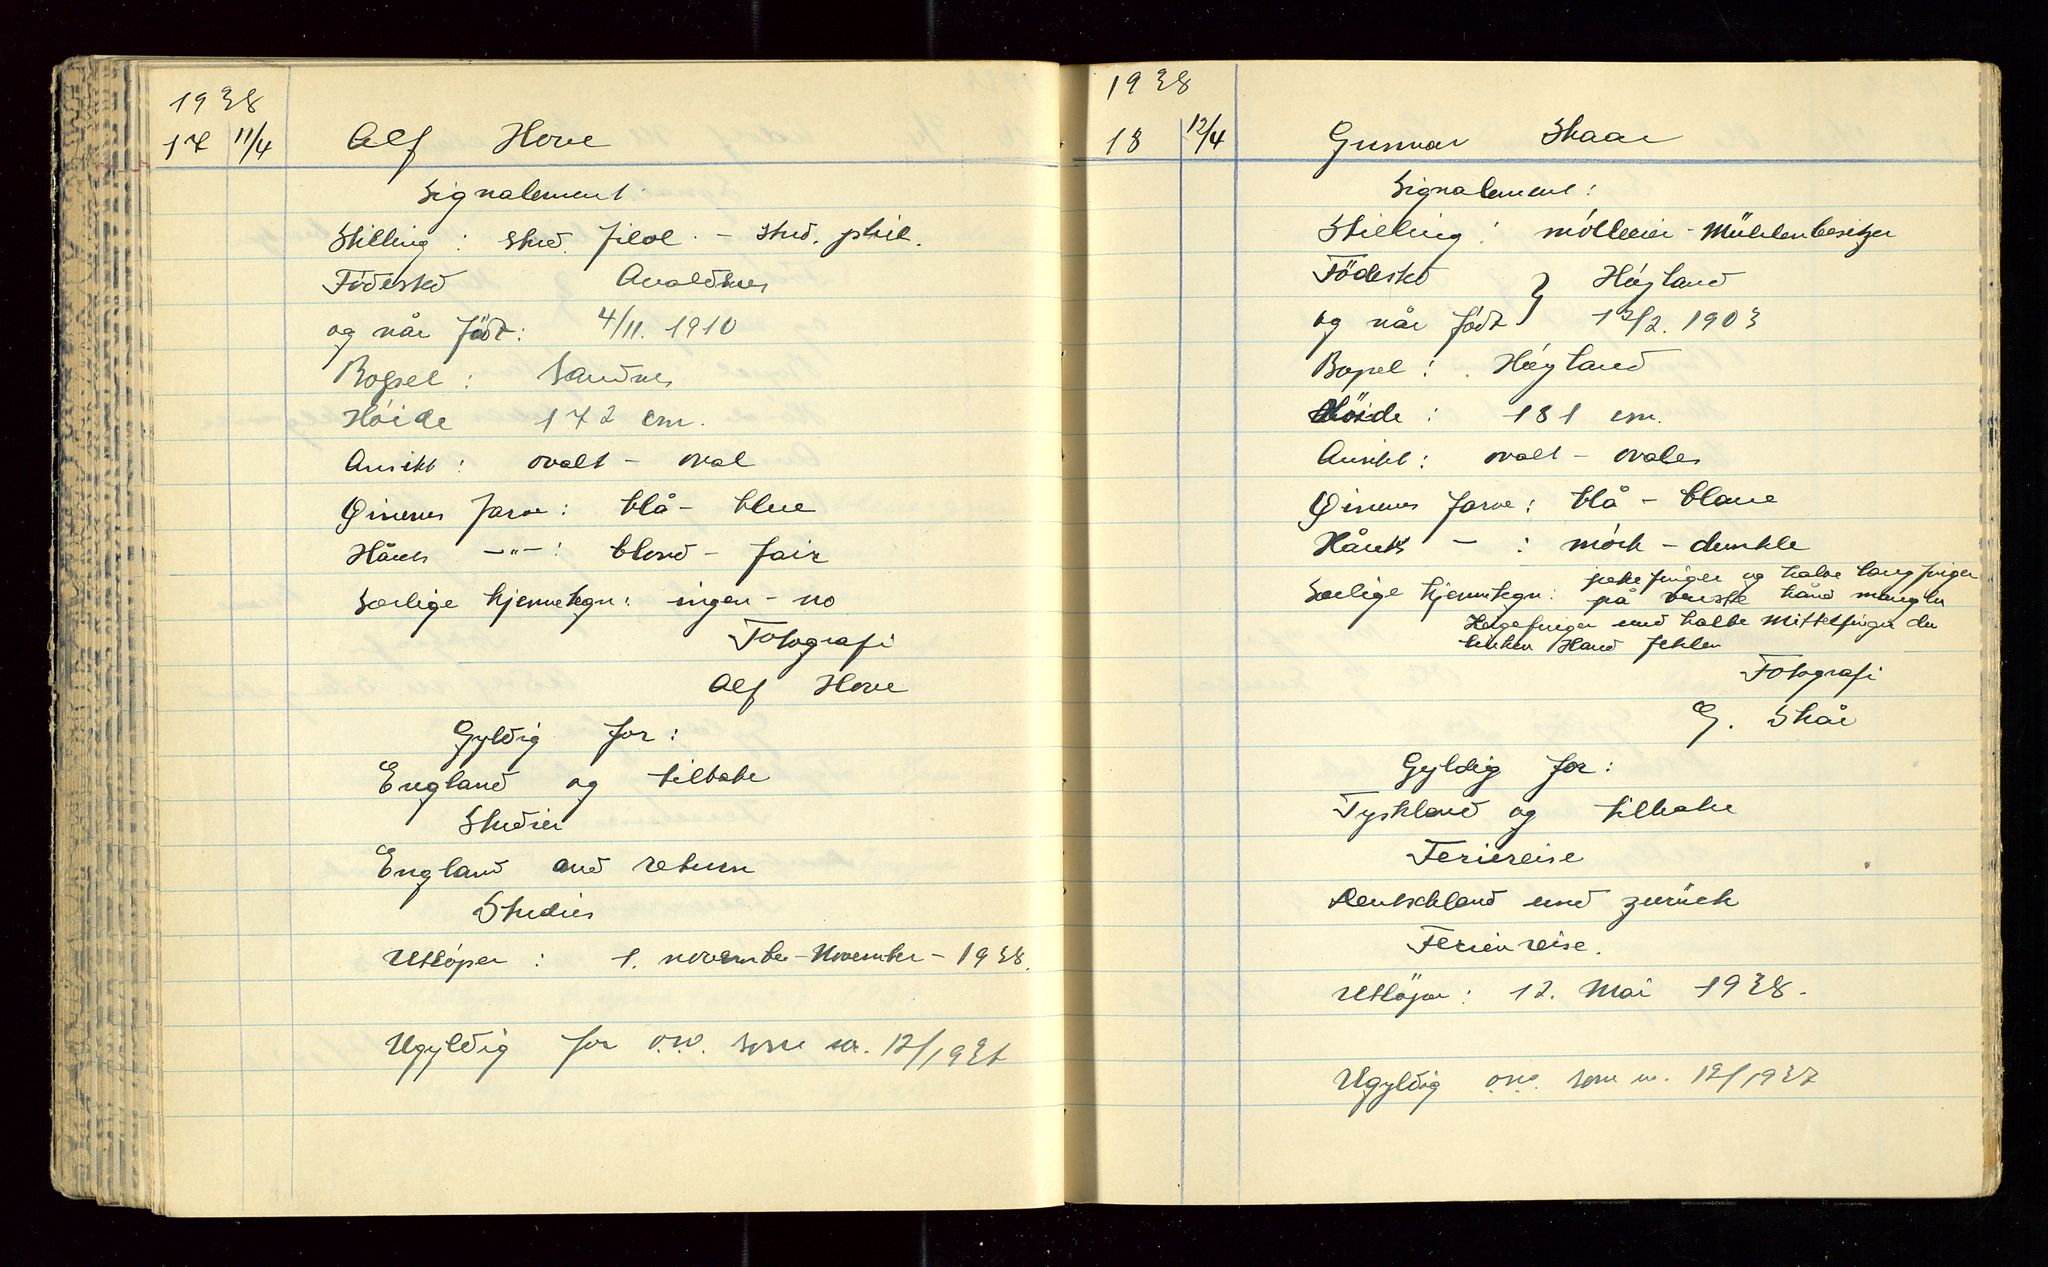 1938
17 11/4 Alf Hove
Signalement
Stilling: stud. filol. - stud. phil.
Födested Avaldsnes
og når født: 4/11. 1910
Bopel: Sandnes
Höide 172 cm.
Ansikt: ovalt - oval
Øinenes farve: blå - blue
Hårets -"-: blond - fair
Særlige kjennetegn: ingen - no
Fotografi
Alf Hove
Gyldig for:
England og tilbake
Studier
England and return
Studies
Utløper: 1. november - November - 1938.
Ugyldig for o.s.v. som nr. 12/1937
1938
18 12/4 Gunnar Skaar
Signalement:
Stilling: mølleeier - Mühlenbesitzer
Födested } Høyland
og når født 12/2. 1903
Bopel: Høyland
Höide: 181 cm.
Ansikt: ovalt - ovales
Øinenes farve: blå - blaue
Hårets - : mörk - dunkle
Særlige kjennetegn: pekefinger og halve langfinger
på venstre hånd mangler
Zeigefinger und halbe Mittelfinger der
linken Hand fehlen
Fotografi
G. Skår
Gyldig for:
Tyskland og tilbake
Feriereise
Deutschland und zurück
Ferienreise.
Utløper: 12. Mai 1938.
Ugyldig o.s.v. som nr. 12/1937